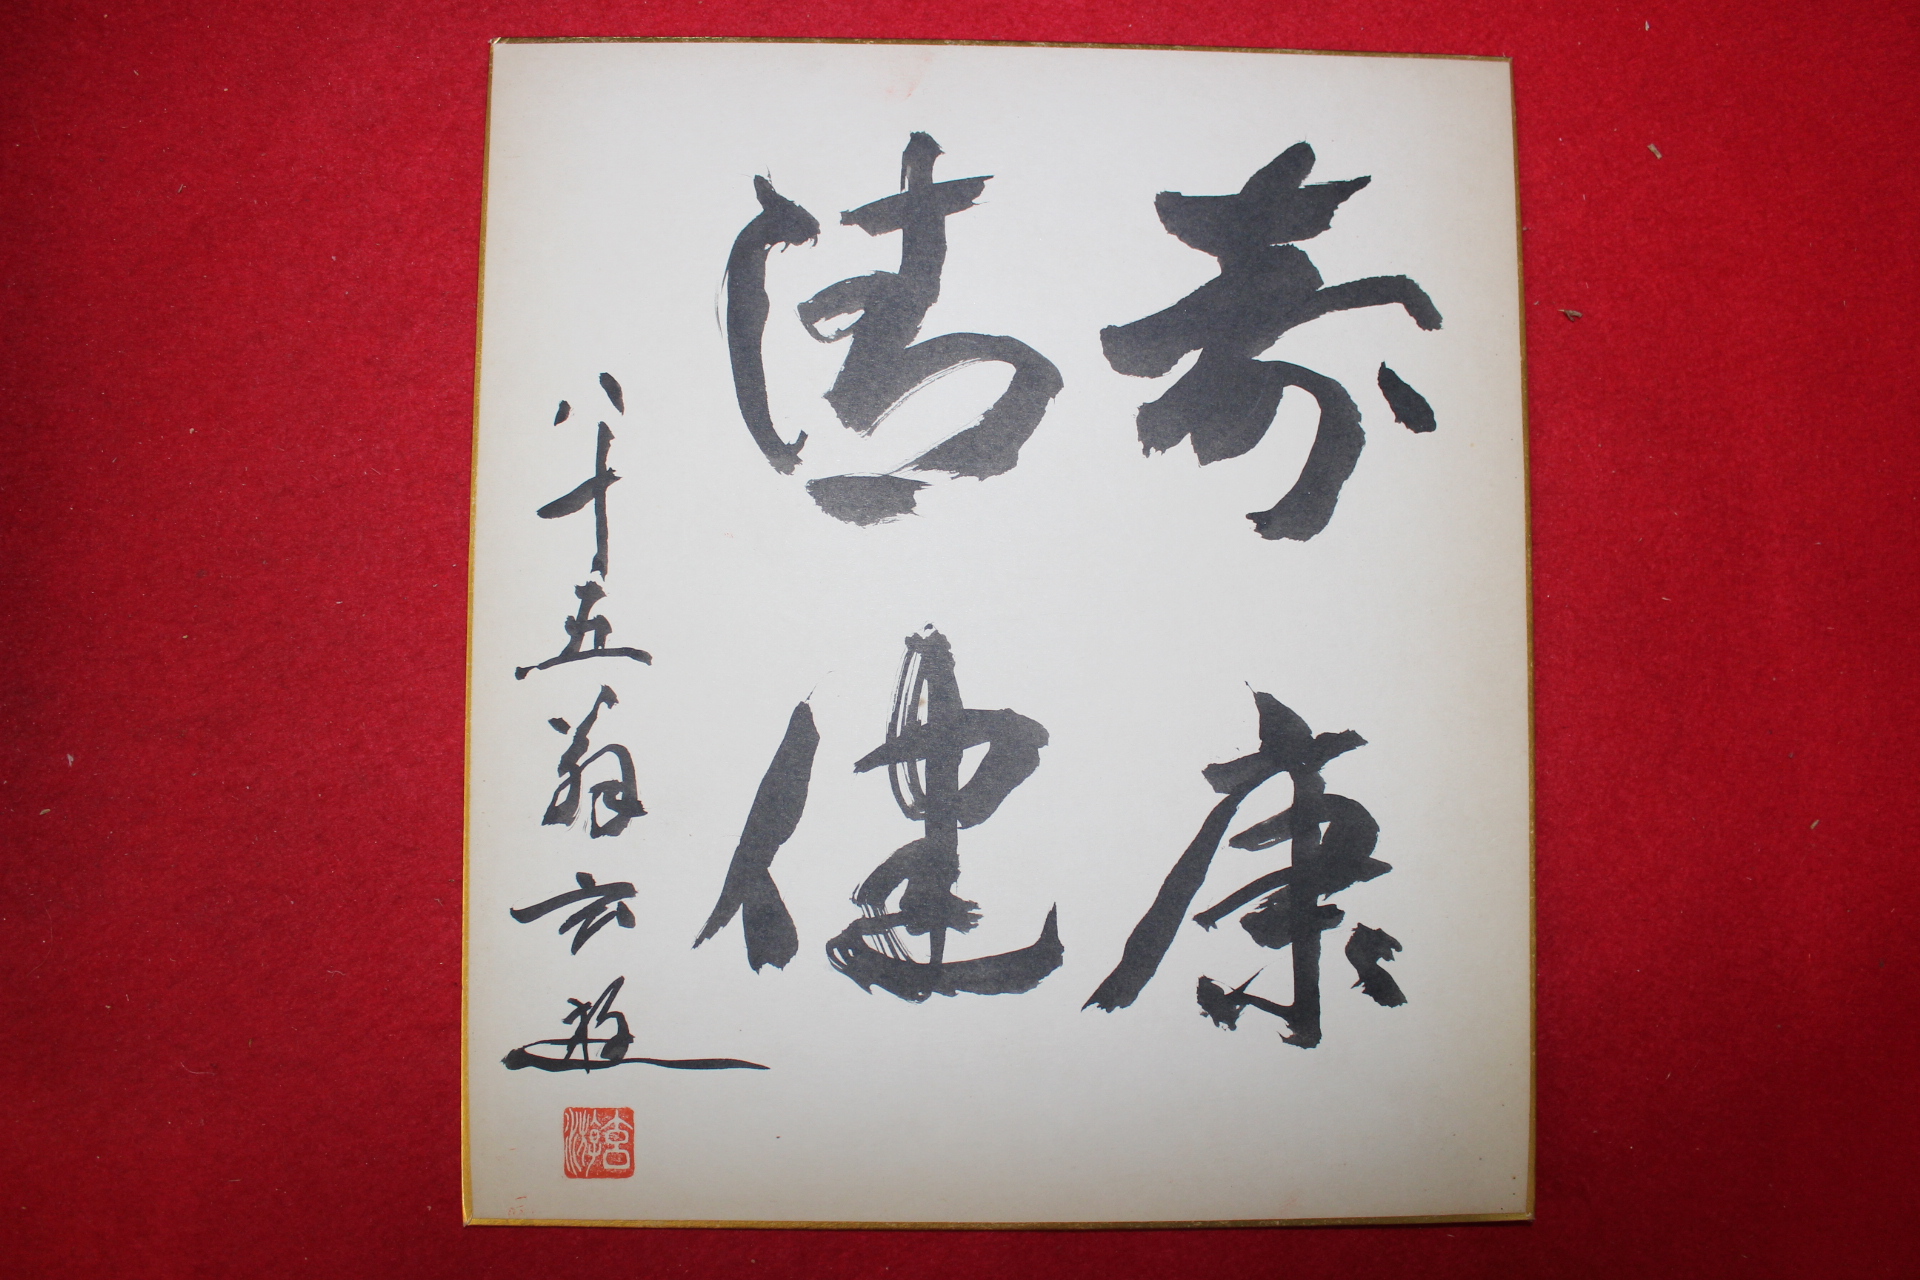 寿康
清健
八十五翁 遊